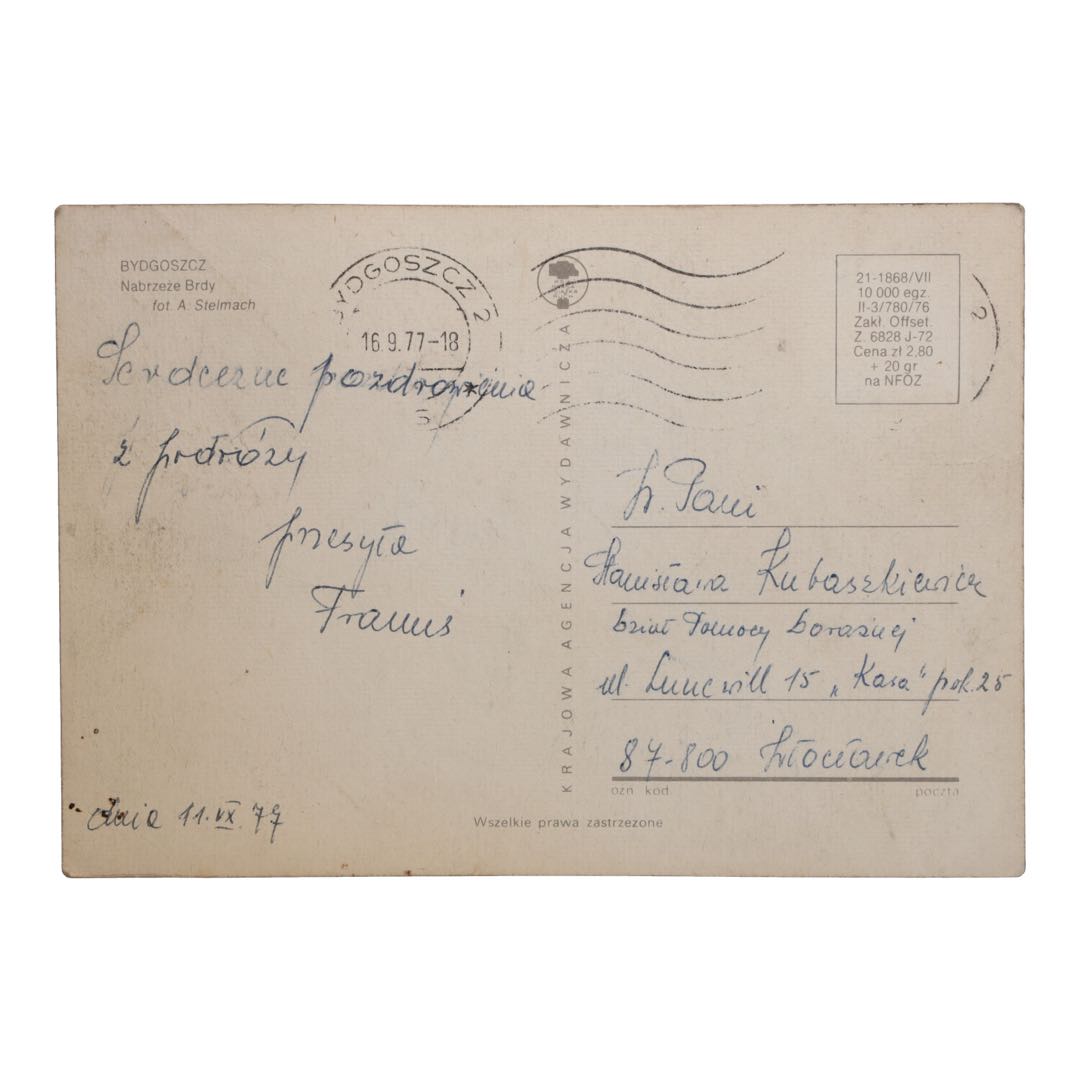 BYDGOSZCZ
Nabrzeże Brdy
fot. A. Stelmach
BYDGOSZCZ 2
16.9.77-18
5
Serdeczne pozdrowienia
z podróży
przesyła
Franuś
dnia 11.IX.77
KRAJOWA AGENCJA WYDAWNICZA
Wszelkie prawa zastrzeżone
21-1868/VII
10 000 egz.
II-3/780/76
Zakł. Offset.
Z. 6828 J-72
Cena zł 2,80
+ 20 gr
na NFOZ
2
Sz. Pani
Stanisława Kubaszkiewicz
Dział Pomocy Doraźnej
ul. 15 „Kasa" pok. 25
87-800 Włocławek
ozn. kod.
poczta